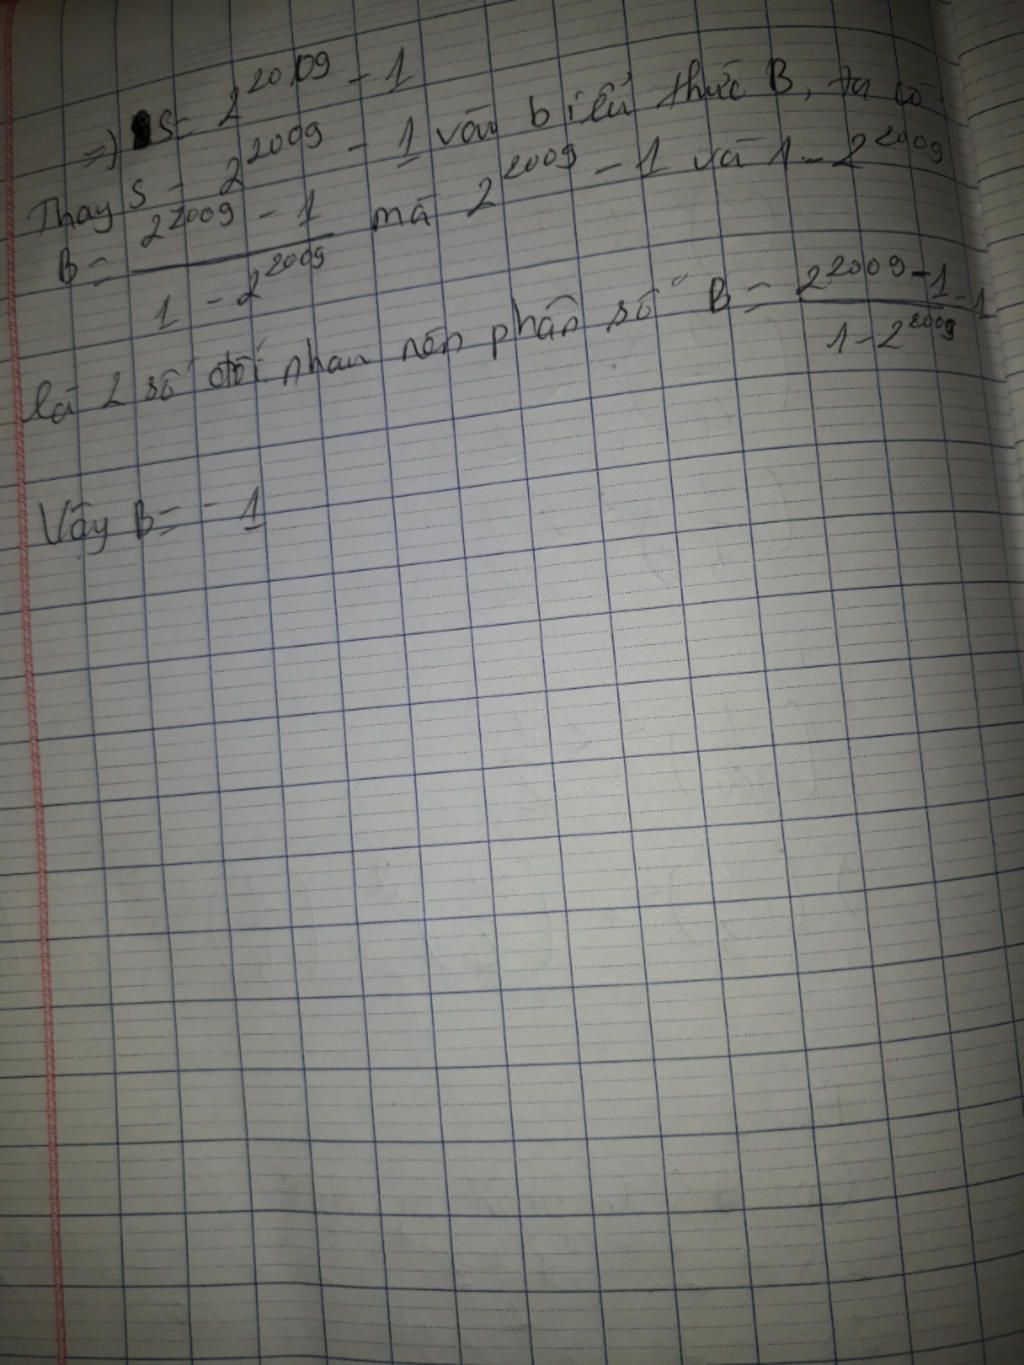 => S = 2^2009 - 1
Thay S = 2^2009 - 1 vào biểu thức B, ta có
B = (2^2009 - 1)/(1 - 2^2009) mà 2^2009 - 1 và 1 - 2^2009
là 2 số đối nhau nên phân số B = (2^2009 - 1)/(1 - 2^2009) = -1
Vậy B = - 1